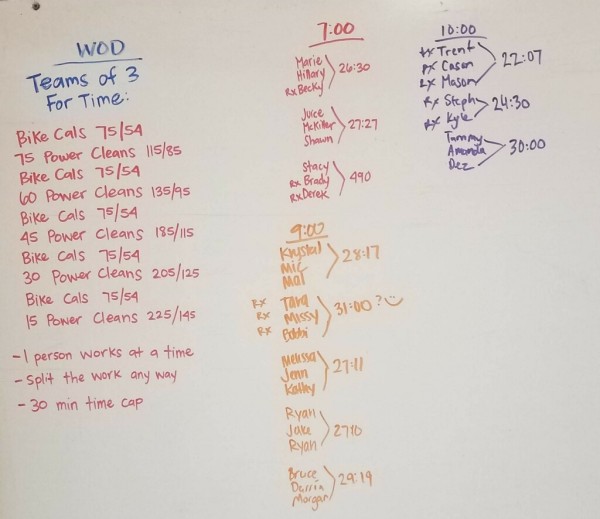 WOD
Teams of 3
For Time:
Bike Cals 75/54
75 Power Cleans 115/85
Bike Cals 75/54
60 Power Cleans 135/95
Bike Cals 75/54
45 Power Cleans 185/115
Bike Cals 75/54
30 Power Cleans 205/125
Bike Cals 75/54
15 Power Cleans 225/145
- 1 person works at a time
- Split the work any way
- 30 min time cap
7:00
Marie
Hillary 26:30
Rx Becky
Juice
McKiller 27:27
Shawn
Stacy
Rx Brady 490
Rx Derek
9:00
Krystal
Mic 28:17
Mal
Rx Tara
Rx Missy 31:00?
Rx Bobbi
Melissa
Jenn 27:11
Kathy
Ryan
Jake 27:10
Ryan
Bruce
Darrin 29:19
Morgan
10:00
Rx Trent
Rx Casen 22:07
Rx Mason
Rx Steph 24:30
Rx Kyle
Tammy
Amanda 30:00
Dez